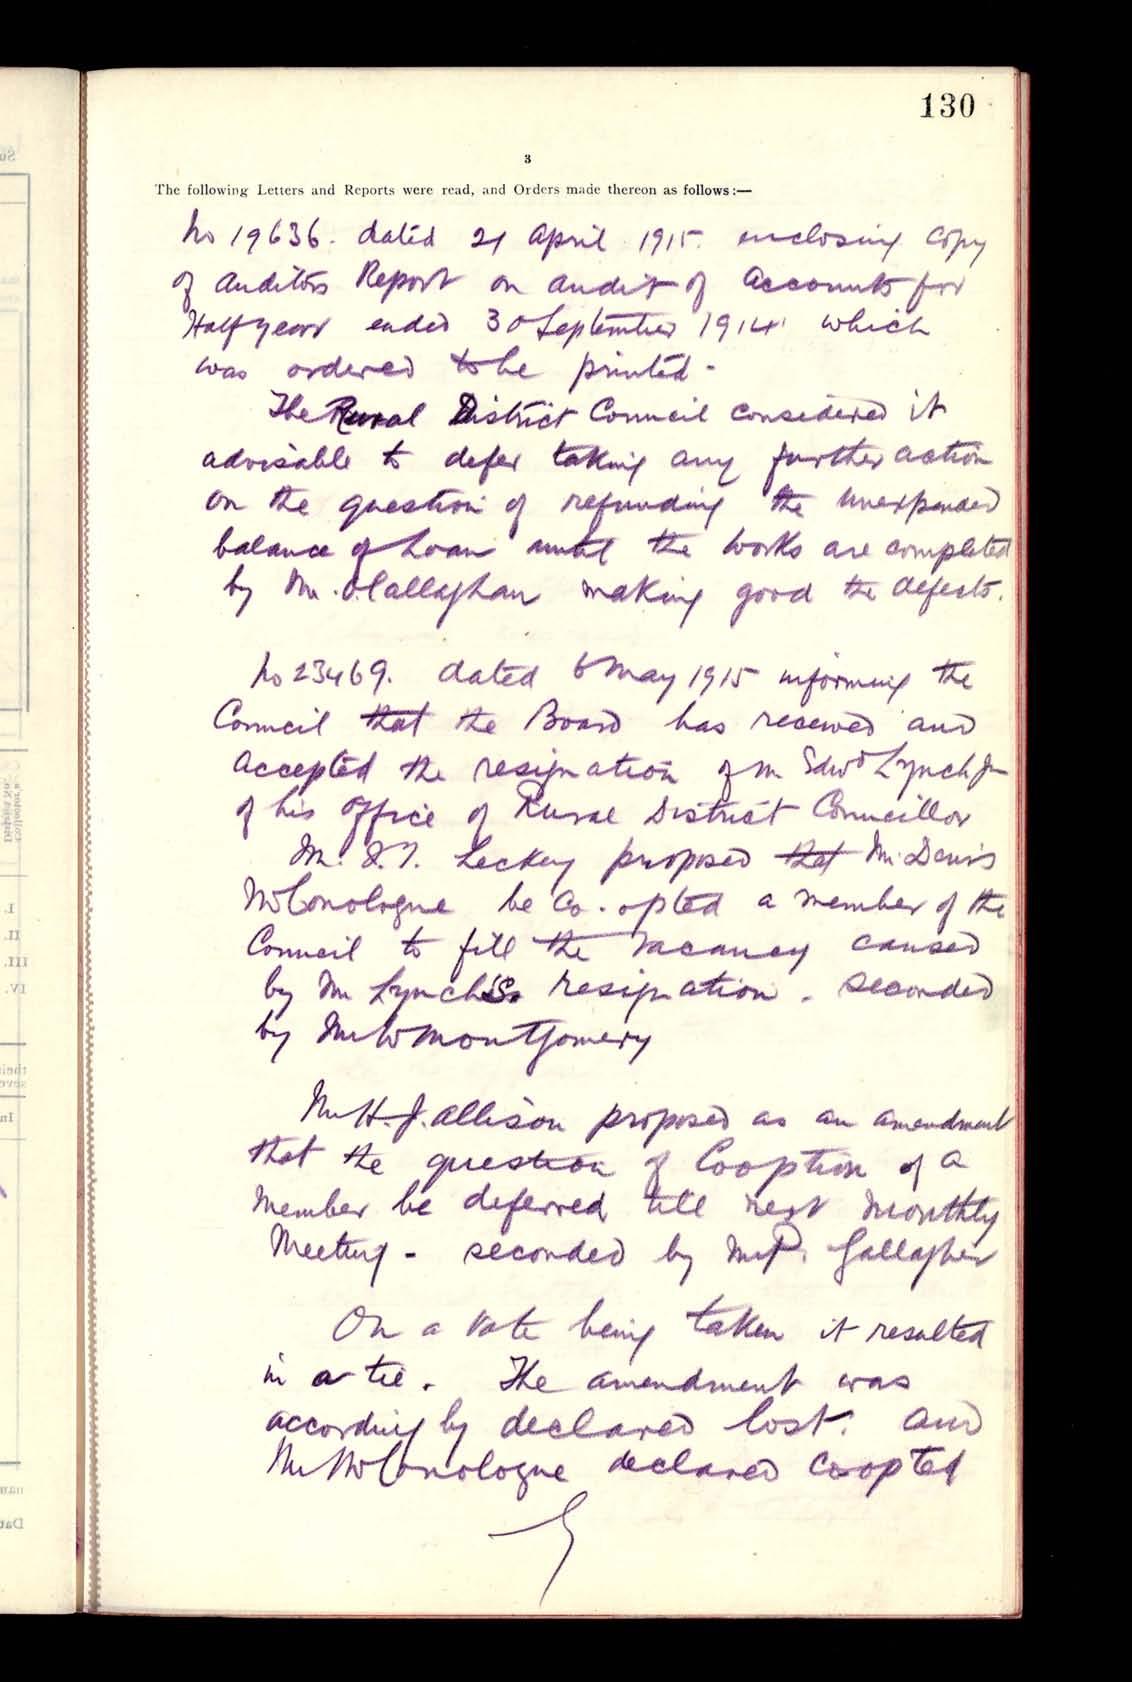 130
3
The following Letters and Reports were read, and Orders made thereon as follows:—
No 19636. dated 21 April 1915. enclosing copy
of Auditors Report on audit of Accounts for
Half year ended 30 September 1914 which
was ordered to be printed -
The Rural District Council considered it
advisable to defer taking any further action
on the question of refunding the unexpended
balance of Loan until the works are completed
by Mr. O'Callaghan making good the defects.
No 23469. dated 6 May 1915 informing the
Council that the Board has received and
accepted the resignation of Mr Edwd Lynch Jn
of his office of Rural District Councillor
Mr. J. T. Leckey proposed that Mr. Denis
McConologue be Co. opted a member of the
Council to fill the vacancy caused
by Mr Lynch's resignation. seconded
by Mr W Montgomery
Mr H. J. Allison proposed as an amendment
that the question of Cooption of a
Member be deferred till next Monthly
Meeting - seconded by Mr P. Gallagher
On a vote being taken it resulted
in a tie. The amendment was
accordingly declared lost. and
Mr McConologue declared Coopted